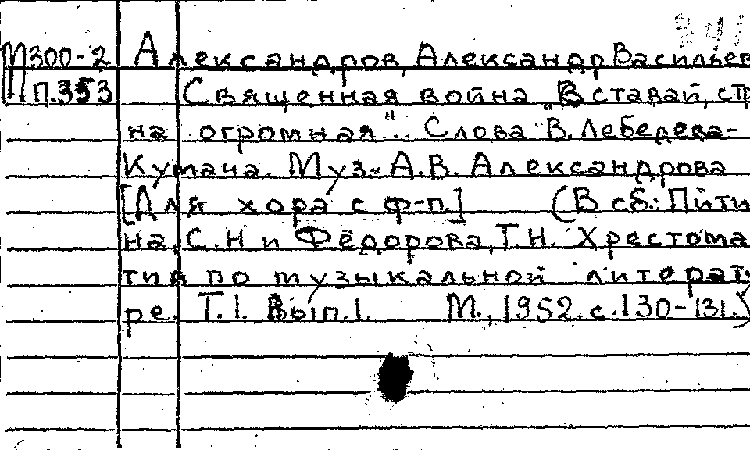 341
М300-2 Александров, Александр Васильев
П.353 Священная война „Вставай, стр
на огромная". Слова В. Лебедева-
Кумача. Муз. А.В. Александрова
[Для хора с ф-п.] (В сб.: Пити
на, С.Н и Фёдорова, Т.Н. Хрестома
тия по музыкальной литерат
ре. Т.1. Вып.1. М., 1952. с.130-131.)